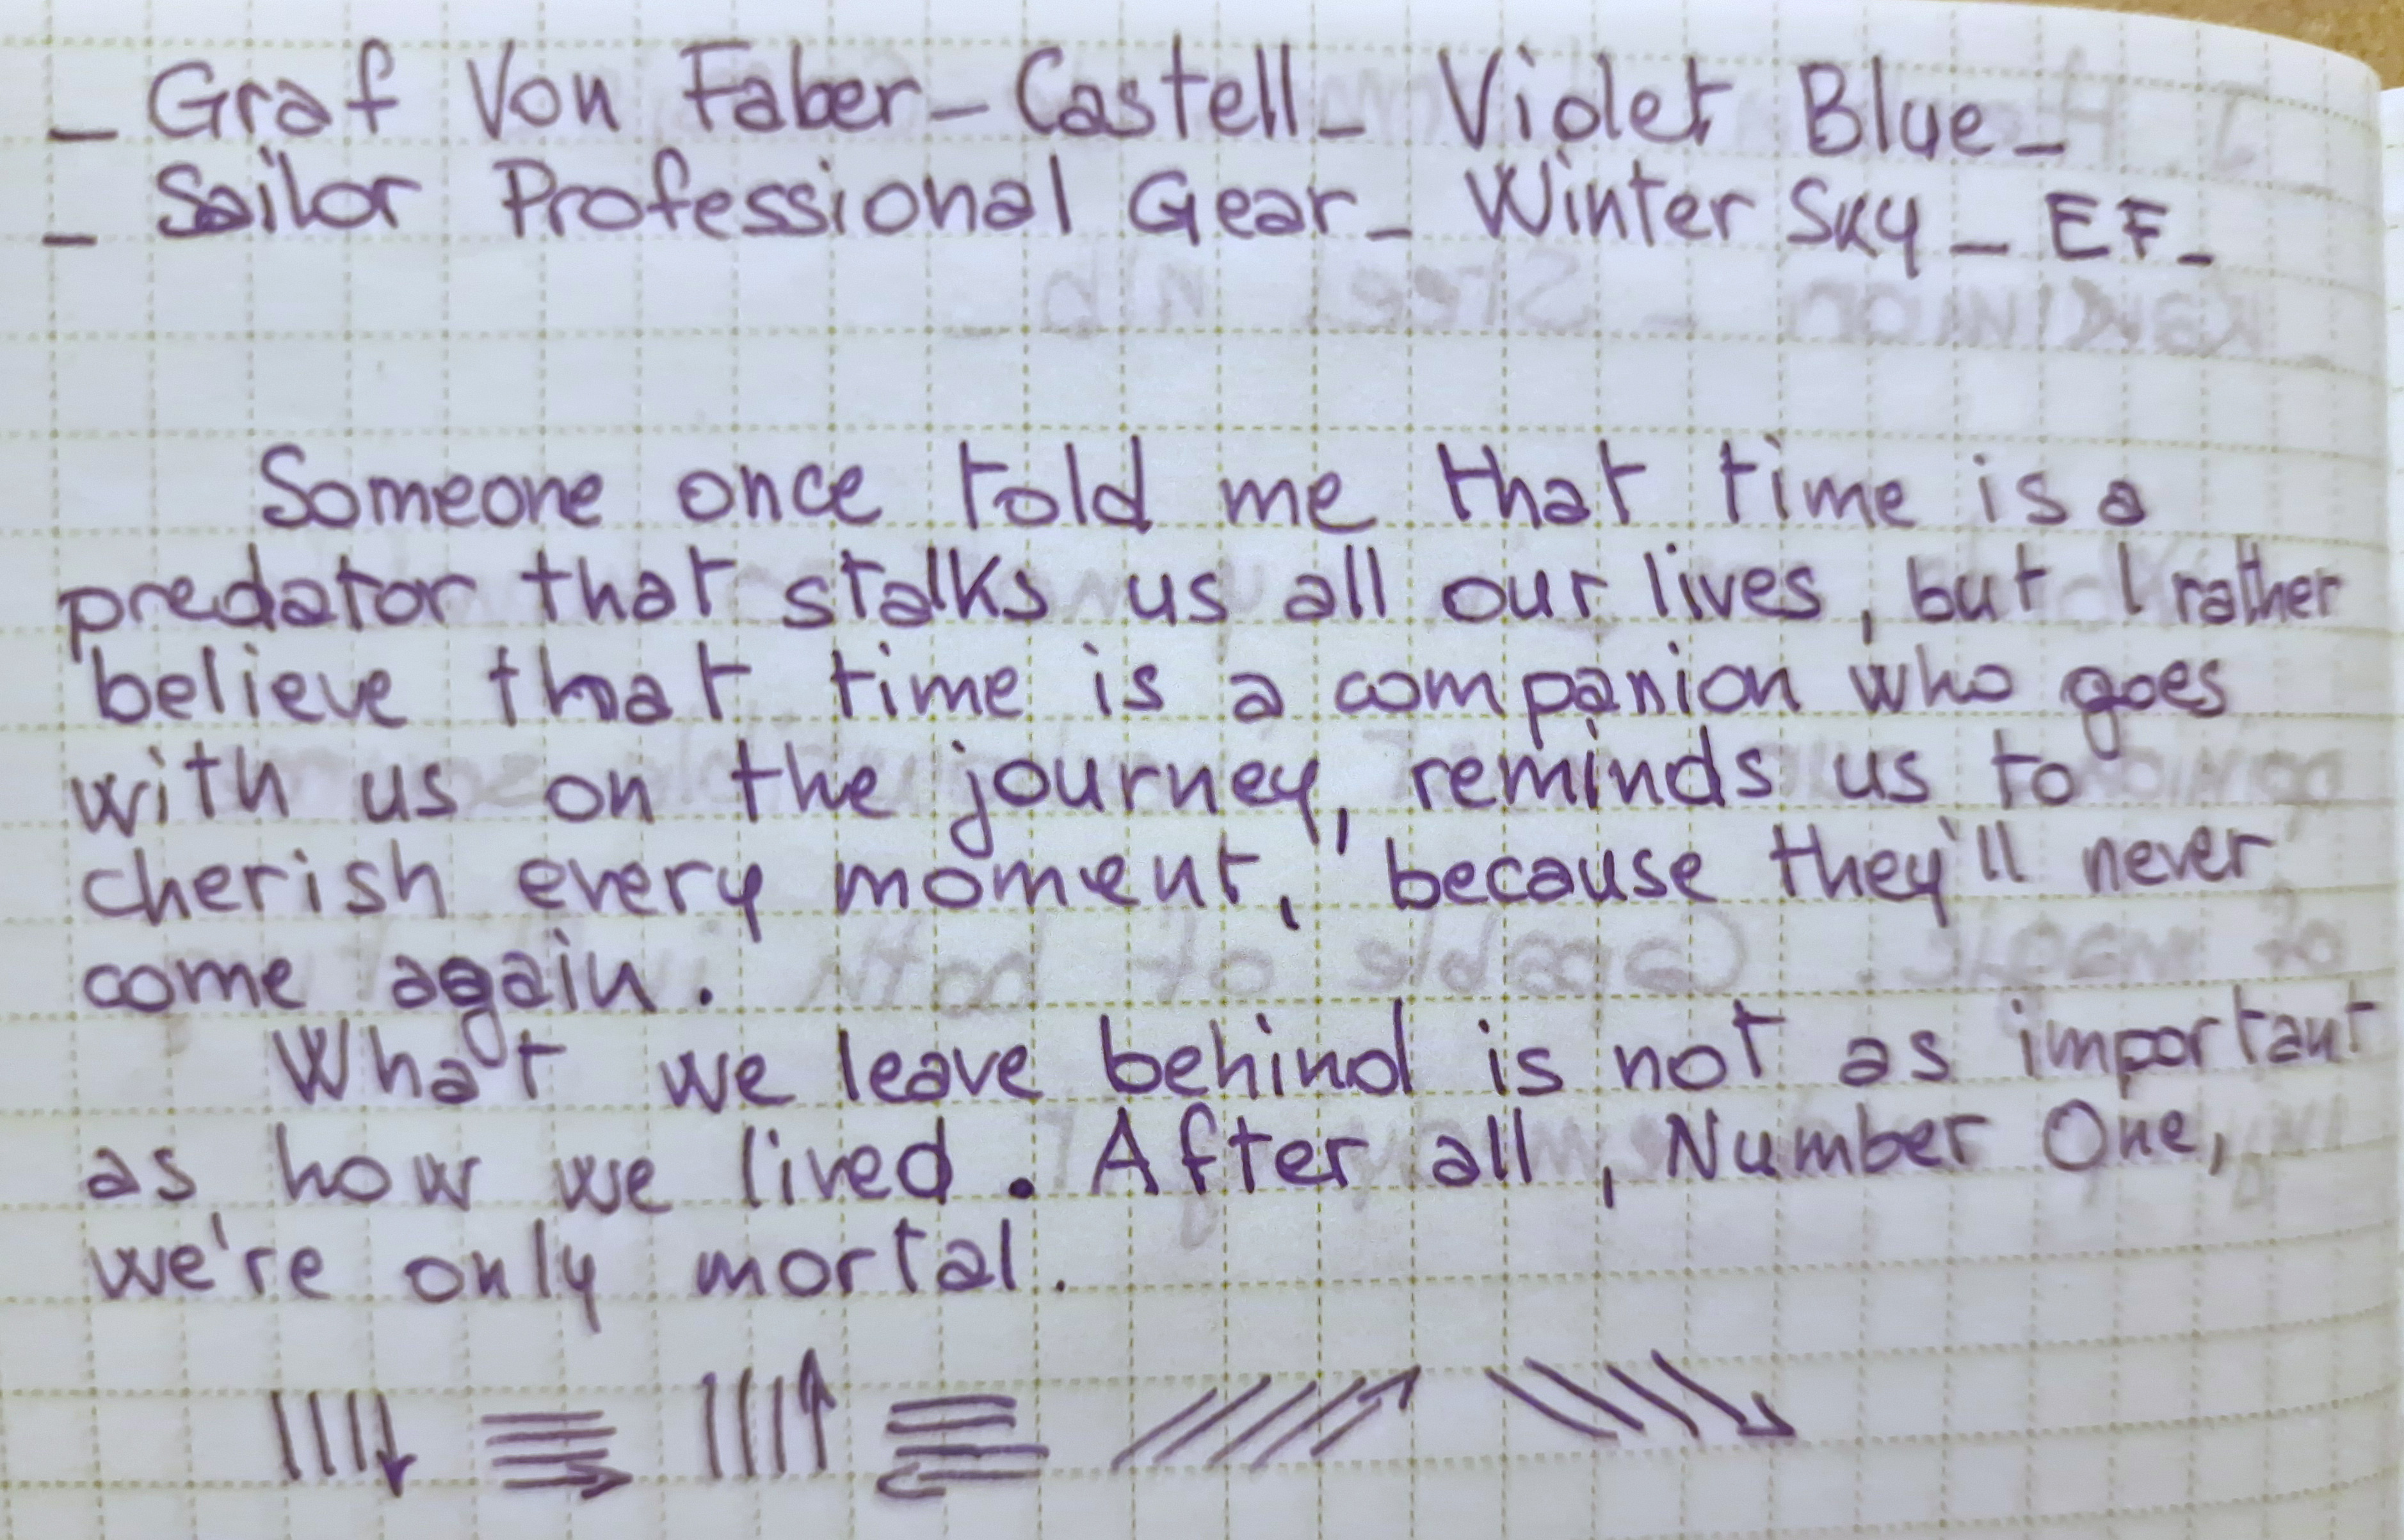 _ Graf Von Faber-Castell_ Violet Blue_
_ Sailor Professional Gear_ Winter Sky_ EF_
Someone once told me that time is a
predator that stalks us all our lives, but I rather
believe that time is a companion who goes
with us on the journey, reminds us to
cherish every moment, because they'll never
come again.
What we leave behind is not as important
as how we lived. After all, Number One,
we're only mortal.